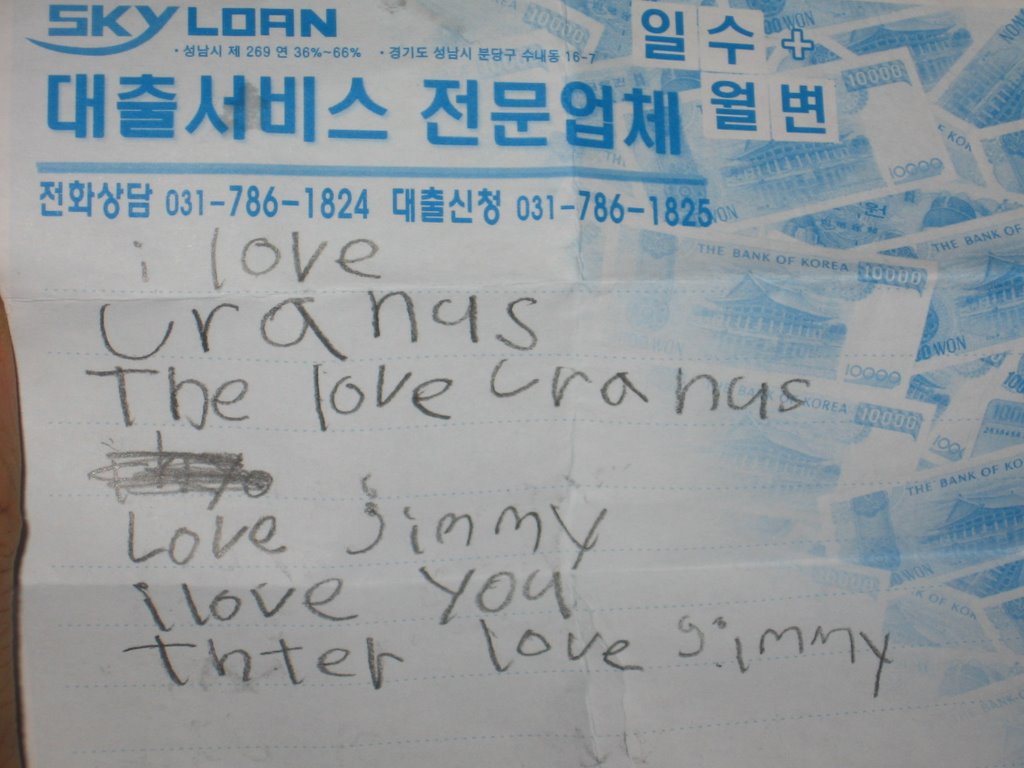 SKY LOAN
·성남시 제 269 연 36%~66% ·경기도 성남시 분당구 수내동 16-7
일수+
월변
대출서비스 전문업체
전화상담 031-786-1824 대출신청 031-786-1825
i love
uranus
The love uranus
Love jimmy
i love you
tnter love jimmy
10000
10000
THE BANK OF KOREA 10000
10000
10000
THE BANK OF KO
WON